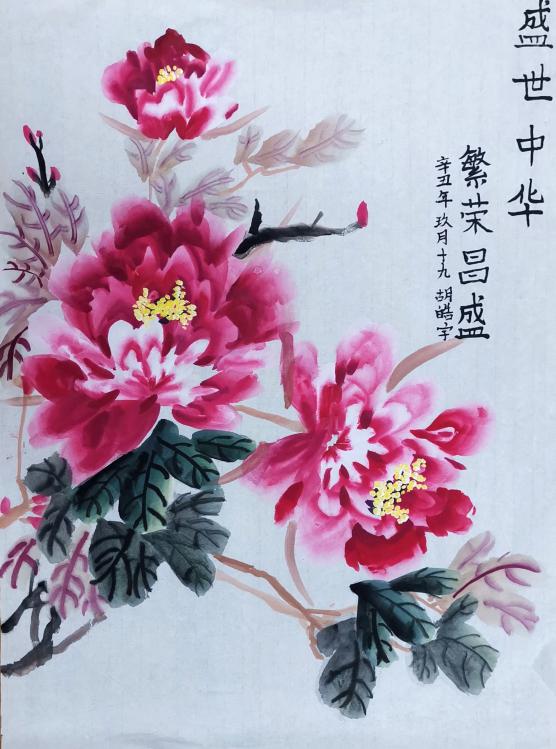 盛世中华
繁荣昌盛
辛丑年玖月十九 胡皓宇